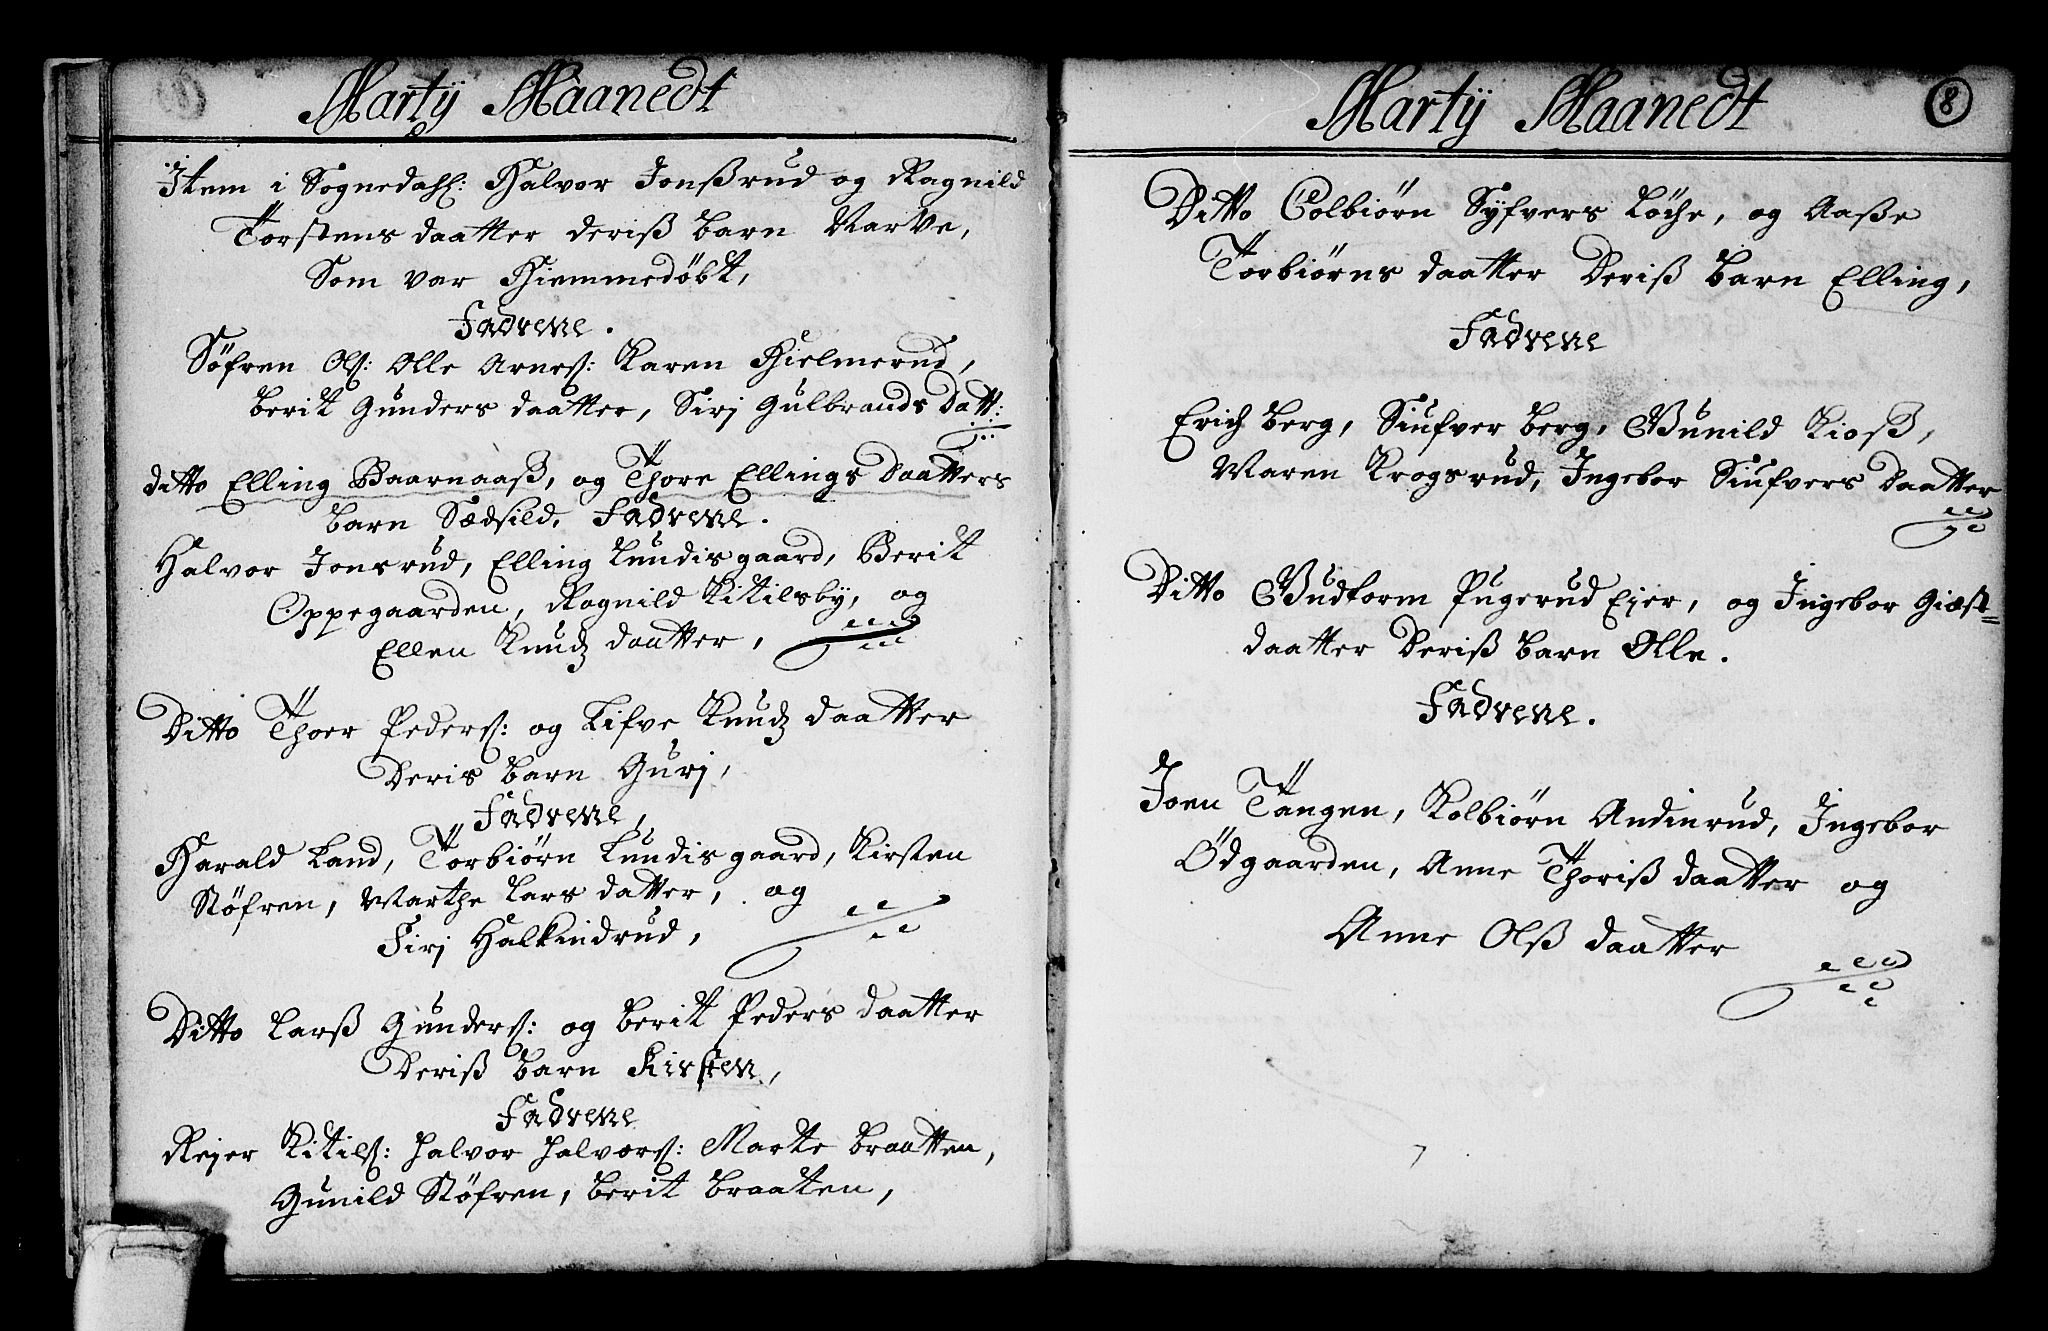 Martij Maanedt
Item i Sognedahl: Halvor Jonßrud og Ragnild
Torstens daatter deriß barn Marve,
Som var Hiemmedøbt,
Fadrene.
Søfren Ols: Olle Arnes: Karen Hielmerud,
berit Gunders daatter, Sirj Gulbrands Datt:
ditto Elling Baarnaaß, og Thore Ellings Daatters
barn Sædsild, Fadrene.
Halvor Jonsrud, Elling Lundisgaard, Berit
Oppegaarden, Ragnild Kitilsby, og
Ellen Knudz daatter,
Ditto Thoer Peders: og Lifve Knudz daatter
Deris barn Gurj,
Fadrene,
Harald Land, Torbiørn Lundisgaard, Kirsten
Støfren, Marthe Lars datter, og
Sirj Halkindrud,
Ditto Larß Gunders: og berit Peders daatter
Deriß barn Kirsten,
Fadrene
Rejer Kitils: Halvor Halvors: Marte braatten,
Gunild Støfren, berit braatten,
Martij Maanedt
8
Ditto Colbiørn Syfvers Løche, og Aaße
Torbiørns daatter Deriß barn Elling,
Fadrene
Erich berg, Siufver berg, Gunild Kioß,
Maren Krogsrud, Ingebor Siufvers Daatter
Ditto Gudtorm Pugerud Ejer, og Ingebor Giæst=
daatter Deriß barn Olle.
Fadrene.
Joen Tangen, Kolbiørn Andinrud, Ingebor
Ødgaarden, Anne Thoriß daatter og
Anne Olß daatter